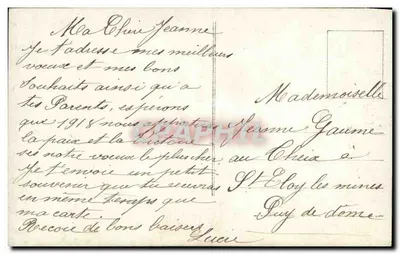 Ma Chère Jeanne
Je t'adresse mes meilleurs
voeux et mes bons
souhaits ainsi qu'a
tes Parents, espérons
que 1918 nous
la paix et la Victoire
notre voeux le plus cher
Je t'envoie un petit
souvenir que tu recevras
en même temps que
ma carte.
Recois de bons baisers
Lucie
Mademoiselle
Jeanne Gaume
au Cheix à
St Eloy les mines
Puy de dome